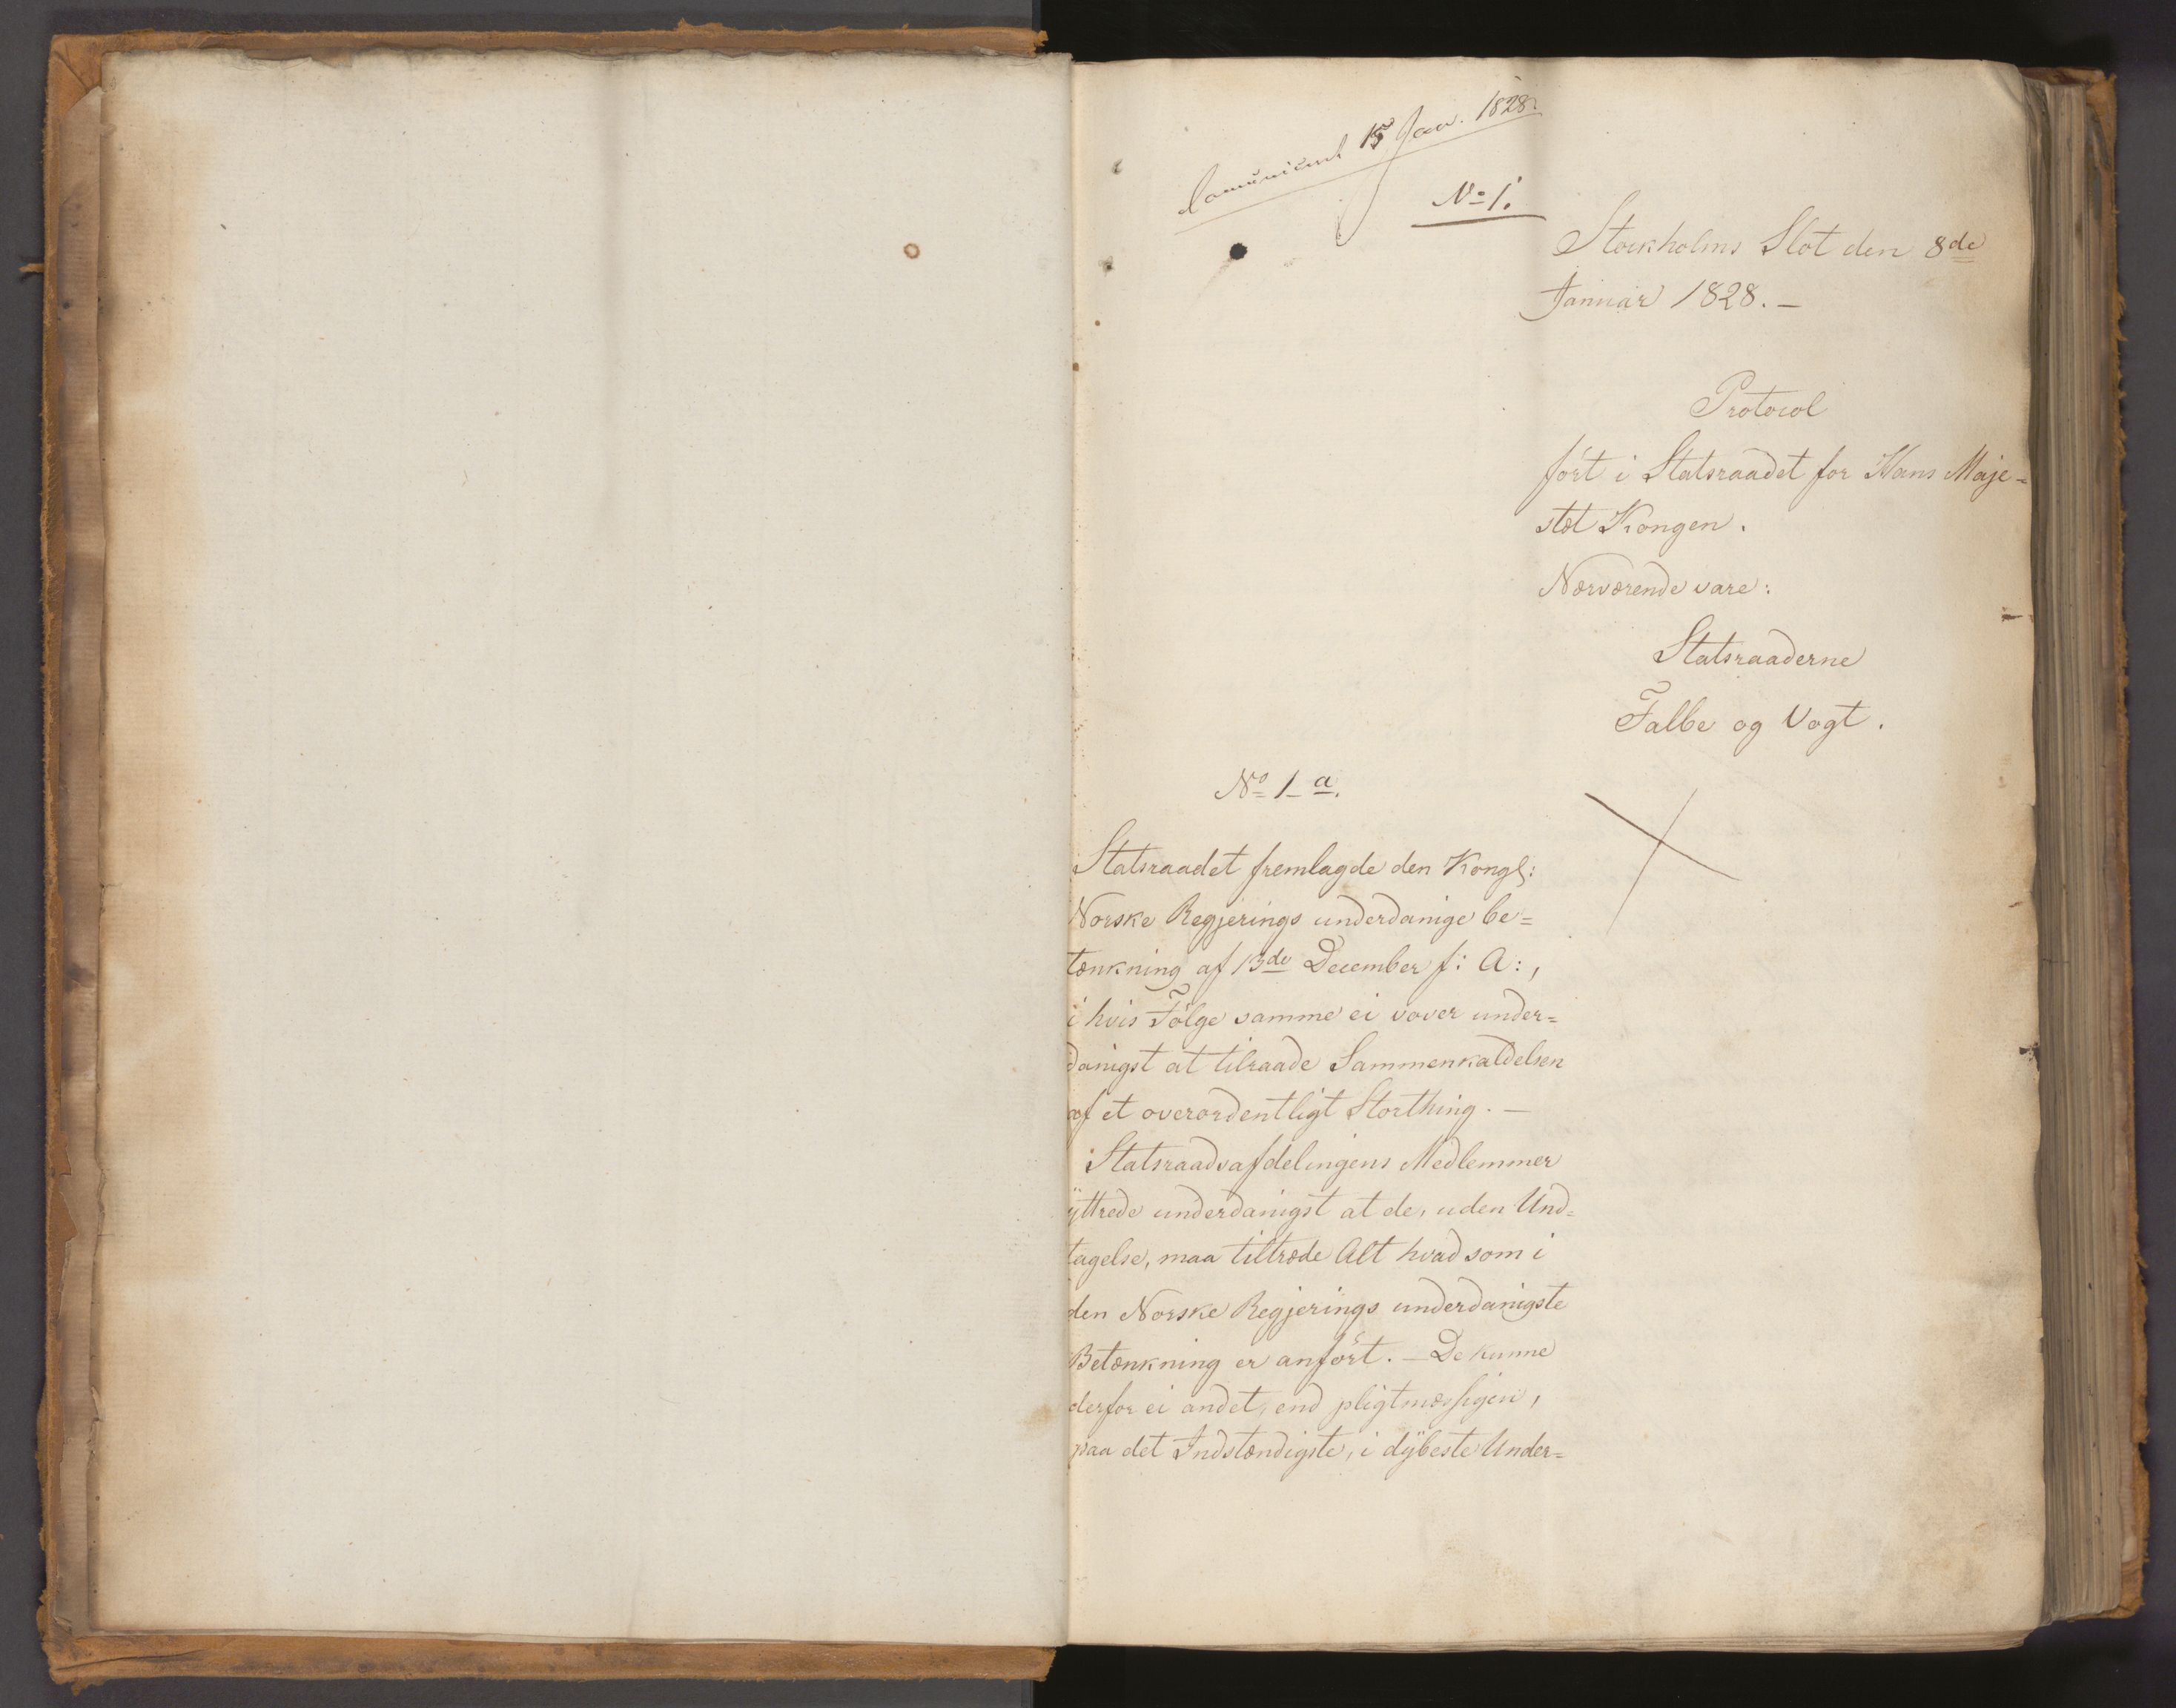 Comuniceret 15 Jan. 1828.
No 1.
Stockholms Slot den 8de
Januar 1828. —
Protocol
fört i Statsraadet for Hans Maje=
stæt Kongen.
Nærværende vare:
Statsraaderne
Falbe og Vogt.
No 1 a.
Statsraadet fremlagde den Kongl:
Norske Regjerings underdanige be=
tænkning af 13de December f: A:,
i hvis Fölge samme ei vover under=
danigst at tilraade Sammenkaldelsen
af et overordentligt Storthing. —
Statsraadsafdelingens Medlemmer
ÿttrede underdanigst at de, uden Und=
tagelse, maa tiltræde Alt hvad som i
den Norske Regjerings underdanigste
Betænkning er anfört. — De kunne
derfor ei andet, end pligtmæssigen,
paa det Indstændigste, i dÿbeste Under=